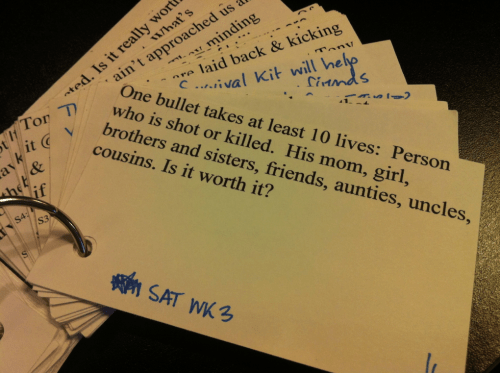 ted. Is it really worth
What's
ain't approached us a
ey minding
are laid back & kicking
Tony
Survival Kit will help
friends
One bullet takes at least 10 lives: Person
who is shot or killed. His mom, girl,
brothers and sisters, friends, aunties, uncles,
cousins. Is it worth it?
SAT WK 3
Tor
it @
&
if